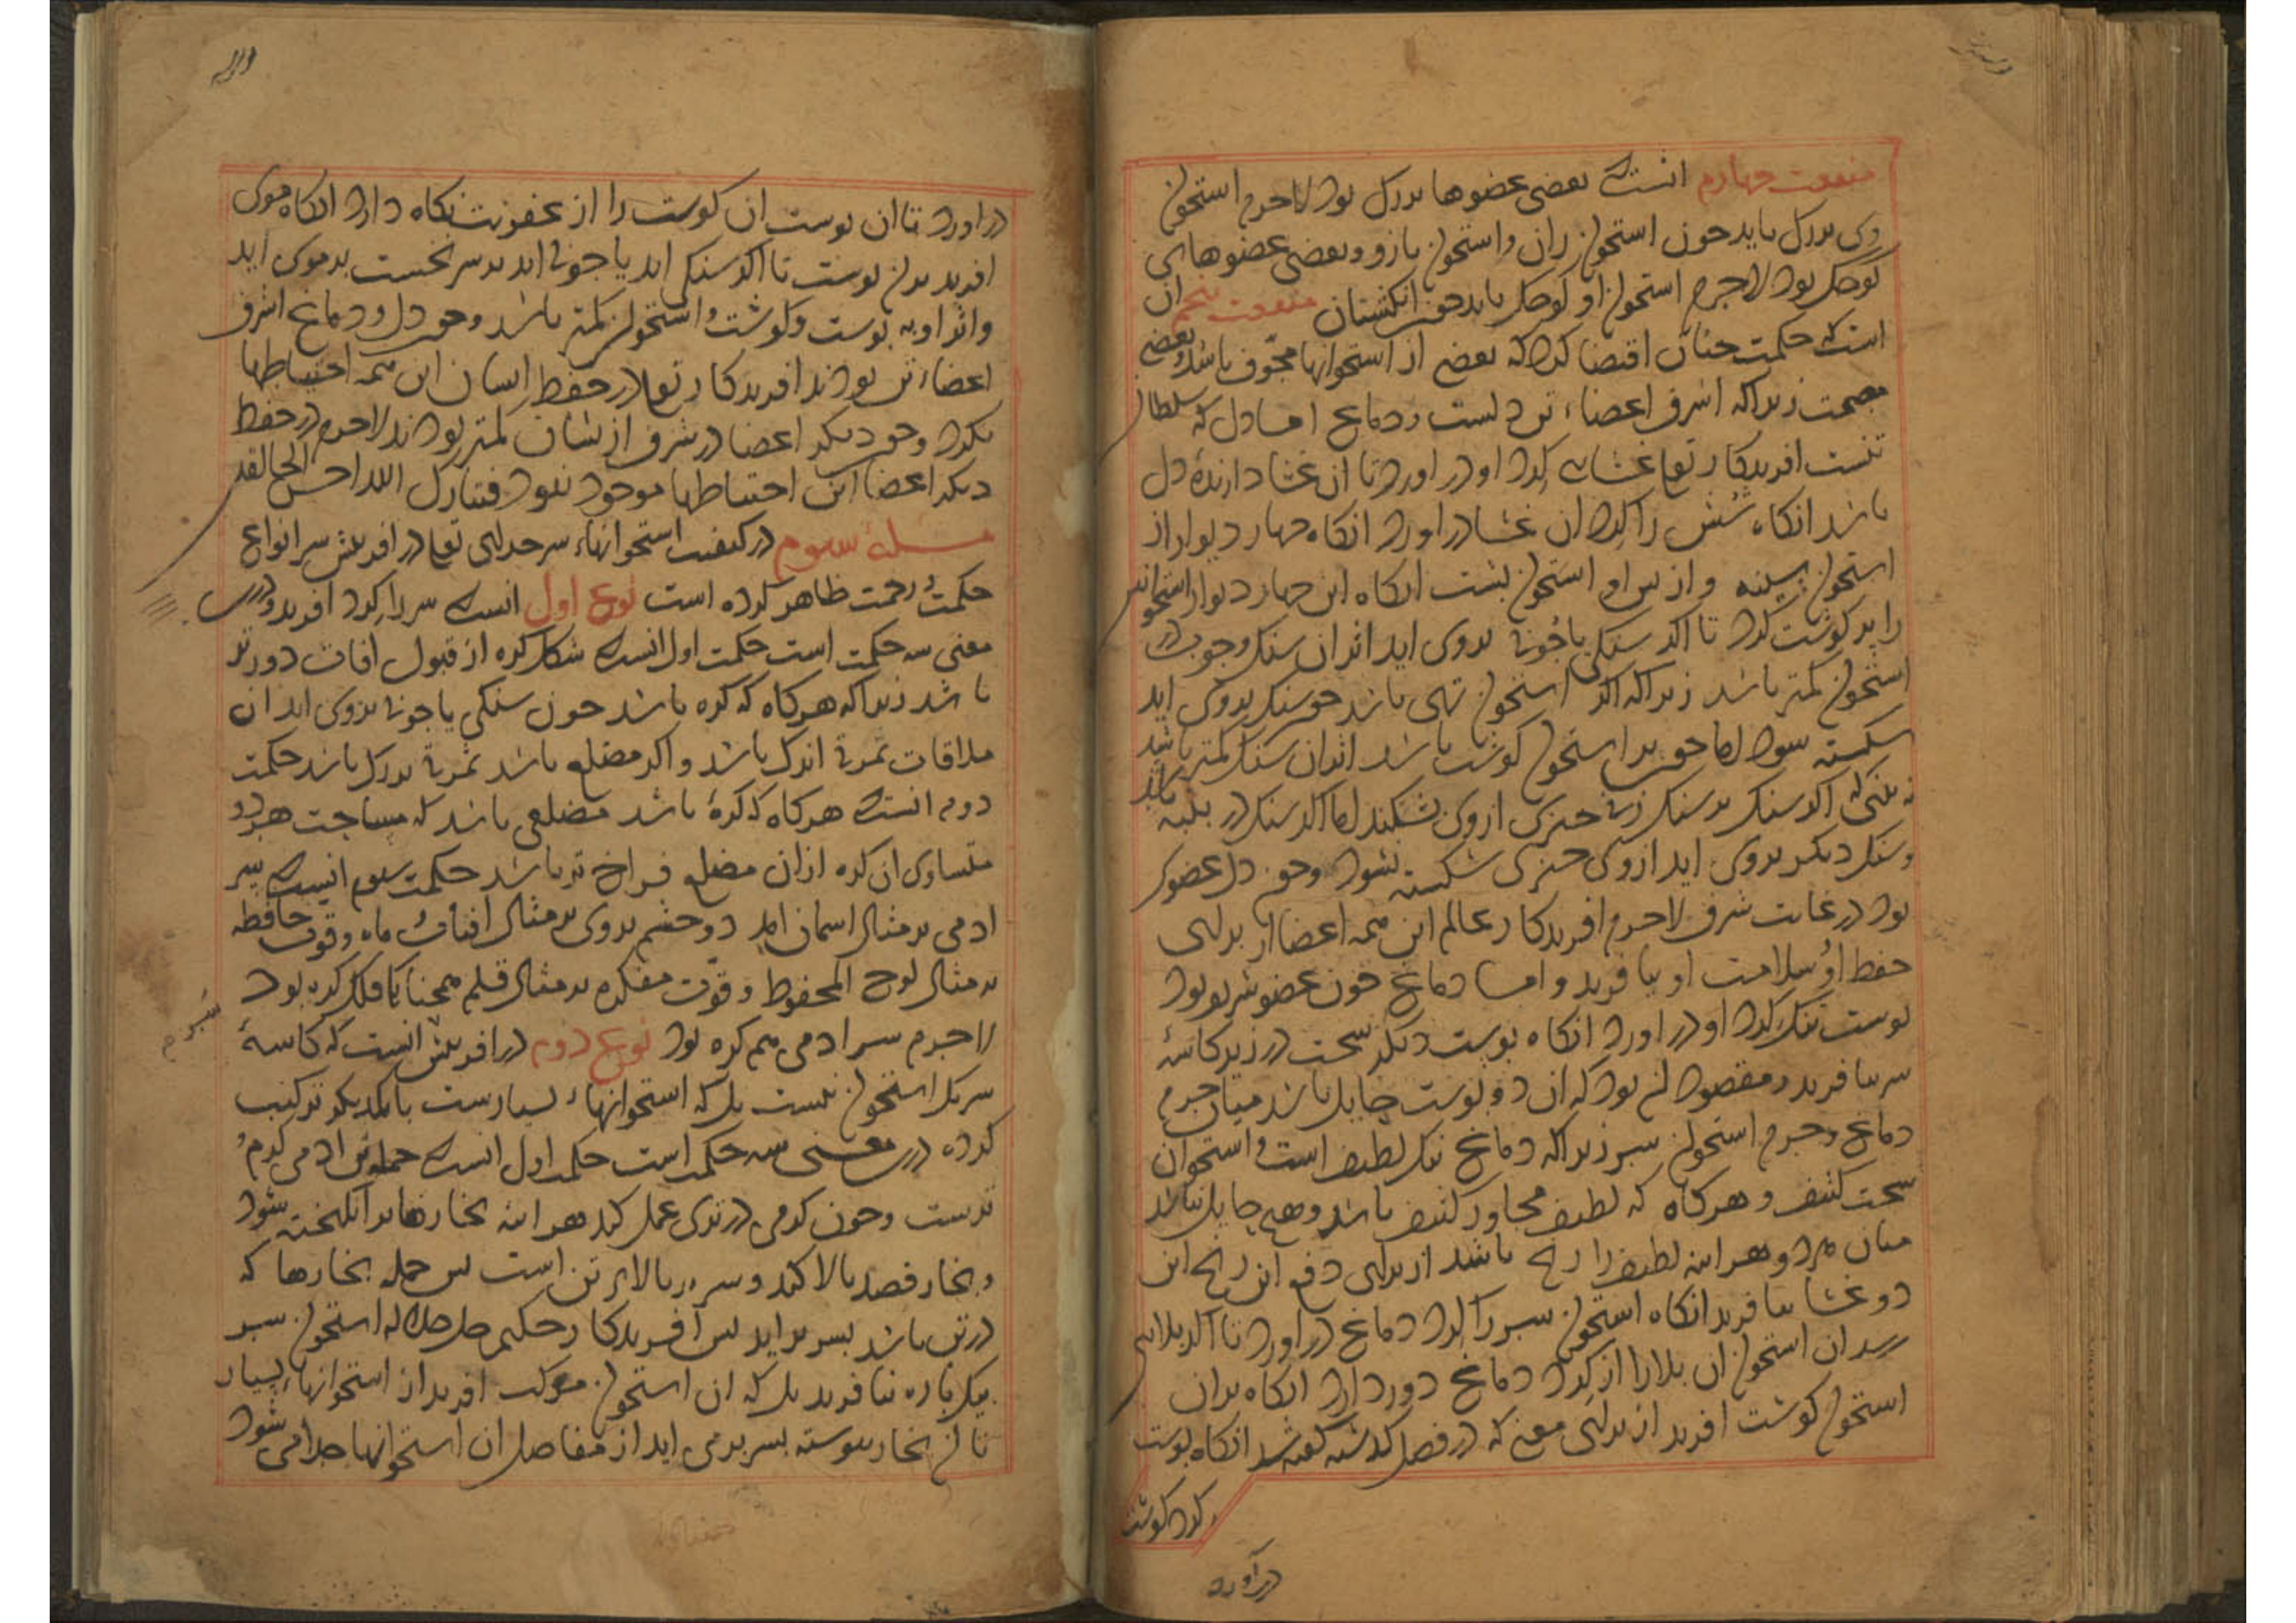 منفعت چهارم انست که بعضی عضوها بزرک بود لاجرم استخوان
وی بزرک باید چون استخوان ران و استخوان بازو و بعضی عضوهای
کوچک بود لاجرم استخوان او کوچک باید چون انکشتان منفعت پنجم ان
است که حکمت چنان اقتضا کرد که بعضی از استخوانها مجوّف باشد و بعضی
مصمت زیرا که اشرف اعضاء تن دلست و دماغ اما دل که سلطان
تنست افریدکار تعا غشایی کرد او در اورد تا ان غشا دارندهٔ دل
باشد انکاه شُش را کرد ان غشا در اورد انکاه چهار دیوار از
استخوان سینه و از پس او استخوان پشت انکاه این چهار دیوار استخوانی
را پر کوشت کرد تا اکر سنکی یا چوبی بروی اید اثر ان سنک و چوب در
استخوان کمتر باشد زیرا که اکر استخوان تهی باشد چون سنک بروی اید
شکسته شود اما چون بر استخوان کوشت باشد اثر ان سنک کمتر باشد
نه بینی که اکر سنک بر سنک زنی چیزی از وی بشکند اما اکر سنک در پنبه
و سنک دیکر بروی اید از وی چیزی شکسته نشود و چون دل عضوی
بود در غایت شرف لاجرم افریدکار عالم این همه اعضا از برای
حفظ او و سلامت او بیافرید و اما دماغ چون عضو شریف بود
پوست تنک کرد او در اورد انکاه پوست دیکر سخت در زیر کاسهٔ
سر بیافرید و مقصود ان بود که ان دو پوست حایل باشد میان جرم
دماغ و جرم استخوان سر زیرا که دماغ تنک لطیف است و استخوان
سخت کثیف و هرکاه که لطیف مجاور کثیف باشد و هیچ حایل نباشد
میان هردو هراینه لطیف را رنج باشد از برای دفع این رنج این
دو غشا بیافرید انکاه استخوان سر را کرد دماغ در اورد تا اکر بلایی
رسد ان استخوان ان بلا را از کرد دماغ دور دارد انکاه بران
استخوان کوشت افرید از برای معنی که در فصل کذشته کفته شد انکاه پوست
کرد کوشت
درآورد
در اورد تا ان پوست ان کوشت را از عفونت نکاه دارد انکاه موی
افرید بران پوست تا اکر سنکی اید یا چوبی اید بر سر نخست بر موی اید
و اثر او به پوست و کوشت و استخوان کمتر باشد و چون دل و دماغ اشرف
اعضاء تن بودند افریدکار تعا در حفظ ایشان این همه احتیاطها
بکرد و چون دیکر اعضا در شرف از ایشان کمتر بودند لاجرم در حفظ
دیکر اعضا این احتیاطها موجود نبود فتبارک الله احسن الخالقین
مسئلهٔ سیوم در کیفیت استخوانهاء سر خدای تعا در افرینش سر انواع
حکمت و رحمت ظاهر کرده است نوع اول انست که سر را کرد افرید و درین
معنی سه حکمت است حکمت اول انست که شکل کره از قبول افات دورتر
باشد زیرا که هرکاه که کره باشد چون سنکی یا چوبی بروی اید ان
ملاقات بمرتبه اندک باشد و اکر مضلع باشد بمرتبه بزرک باشد حکمت
دوم انست که هرکاه که کرهٔ باشد مضلعی باشد که مساحت هردو
متساوی ان کره ازان مضلع فراخ تر باشد حکمت سیوم انست که سر
ادمی بر مثال اسمان امد دو چشم بروی بر مثال افتاب و ماه و قوت حافظه
بر مثال لوح المحفوظ و قوّت مفکره بر مثال قلم همچنانکه فلک کره بود
لاجرم سر ادمی هم کره بود نوع دوم در افرینش انست که کاسهٔ
سر یک استخوان نیست بل که استخوانهاء بسیارست با یکدیکر ترکیب
کرده درین معنی سه حکمت است حکمت اول انست که جملهٔ تن ادمی کرم و
ترست و چون کرمی در تری عمل کند هراینه بخارها برانکیخته شود
و بخار قصد بالا کند و سر بر بالای تن است پس جمله بخارها که
در تن باشد بسر براید پس آفریدکار حکیم جل جلاله استخوان سر
یک پاره نیافرید بل که ان استخوان مرکب افرید از استخوانهاء بسیار
تا ان بخار پیوسته بسر برمی اید از مفاصل ان استخوانها جدا می شود